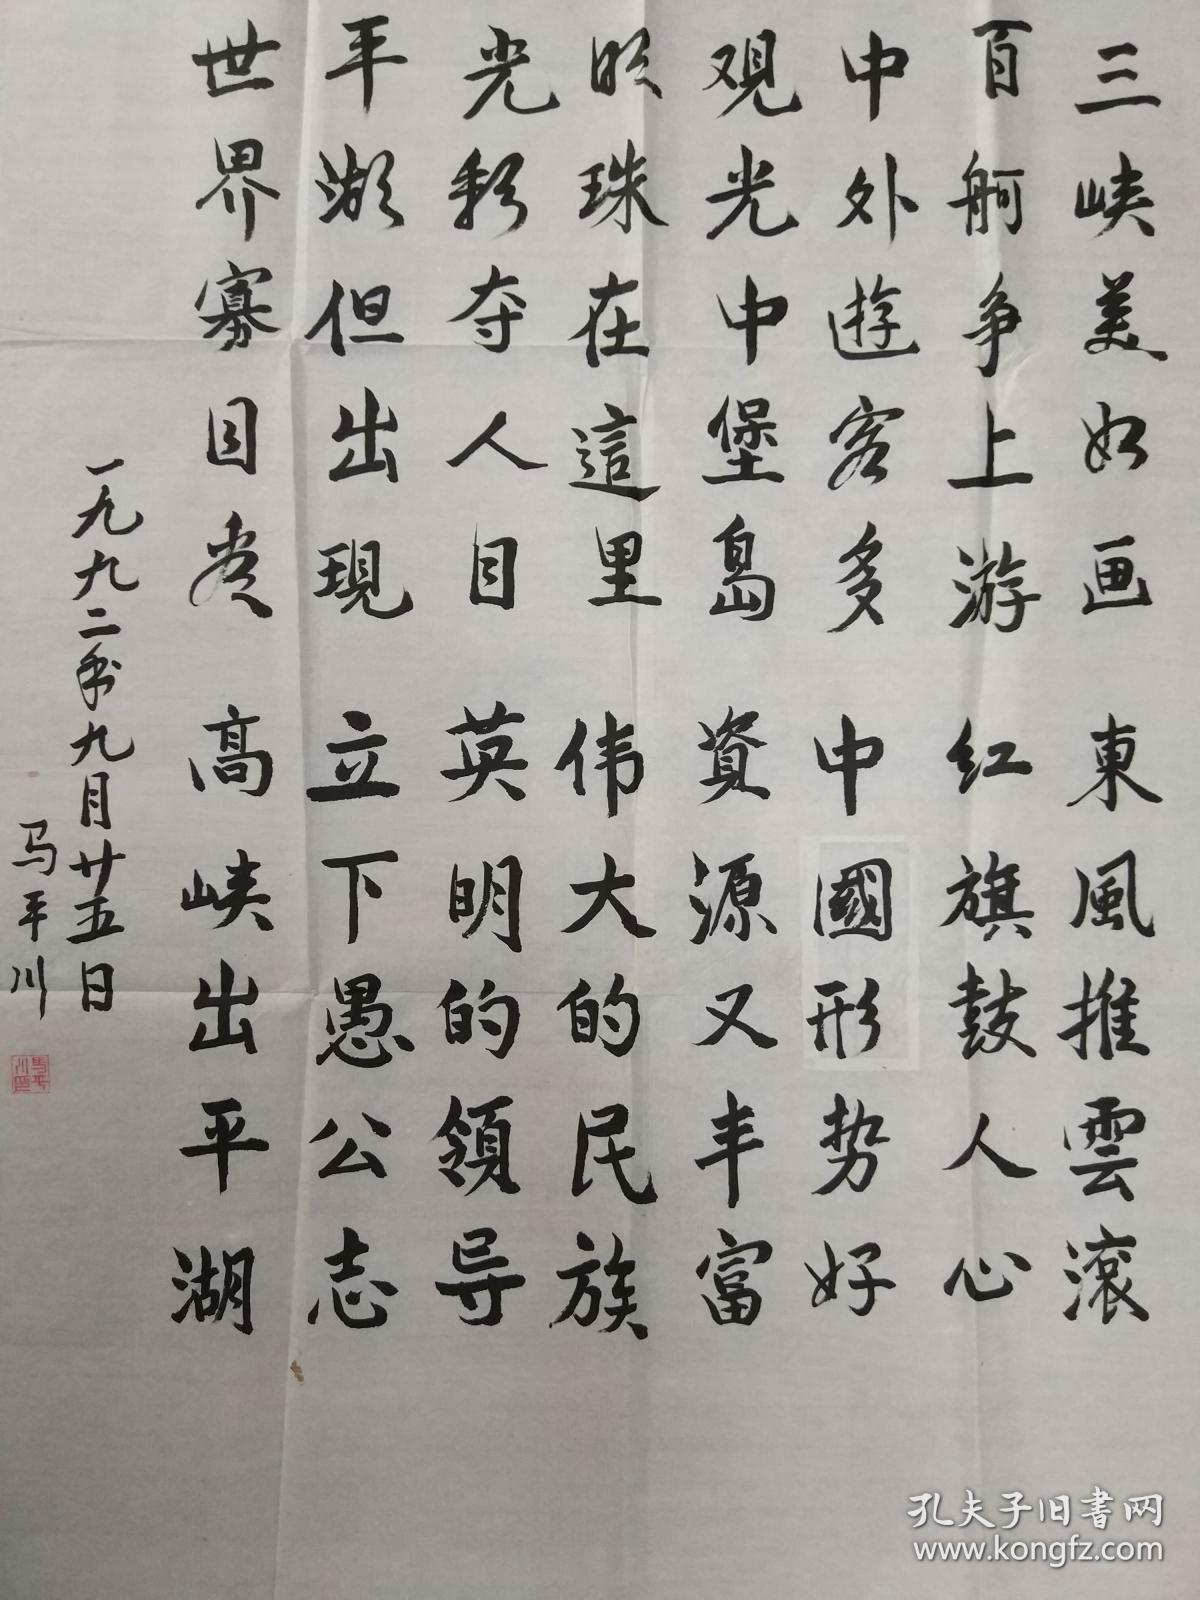 三峡美如画 東風推雲滚
百舸争上游 红旗鼓人心
中外遊客多 中國形势好
观光中堡岛 資源又丰富
珠在這里 伟大的民族
光彩夺人目 英明的領导
平湖但出現 立下愚公志
世界寡目 高峡出平湖
一九九二年九月廿五日
马平川
馬平川印
孔夫子旧书网
www.kongfz.com